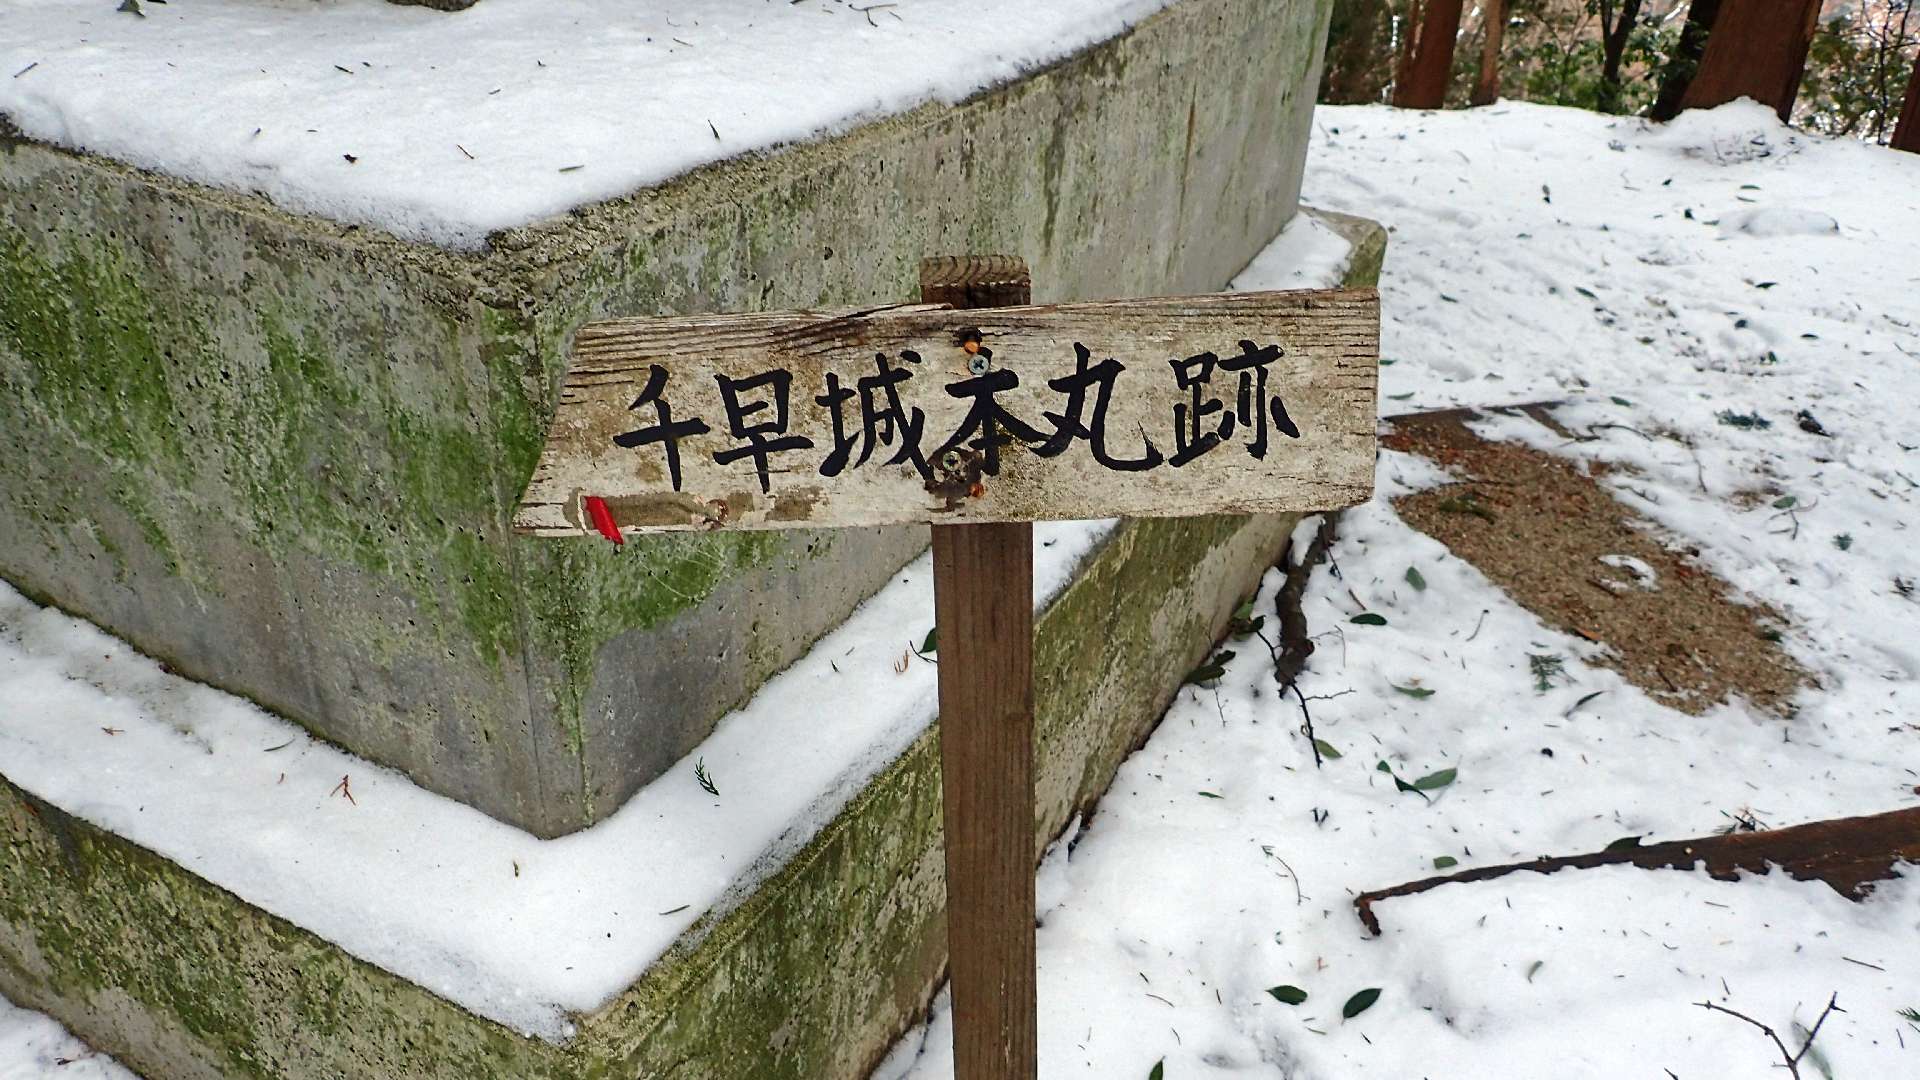 千早城本丸跡